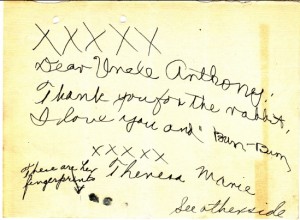 XXXXX
Dear Uncle Anthony,
Thank you for the rabbit,
I love you and "Bum-Bum"
XXXXX
These are her
fingerprints
Theresa Marie
See other side